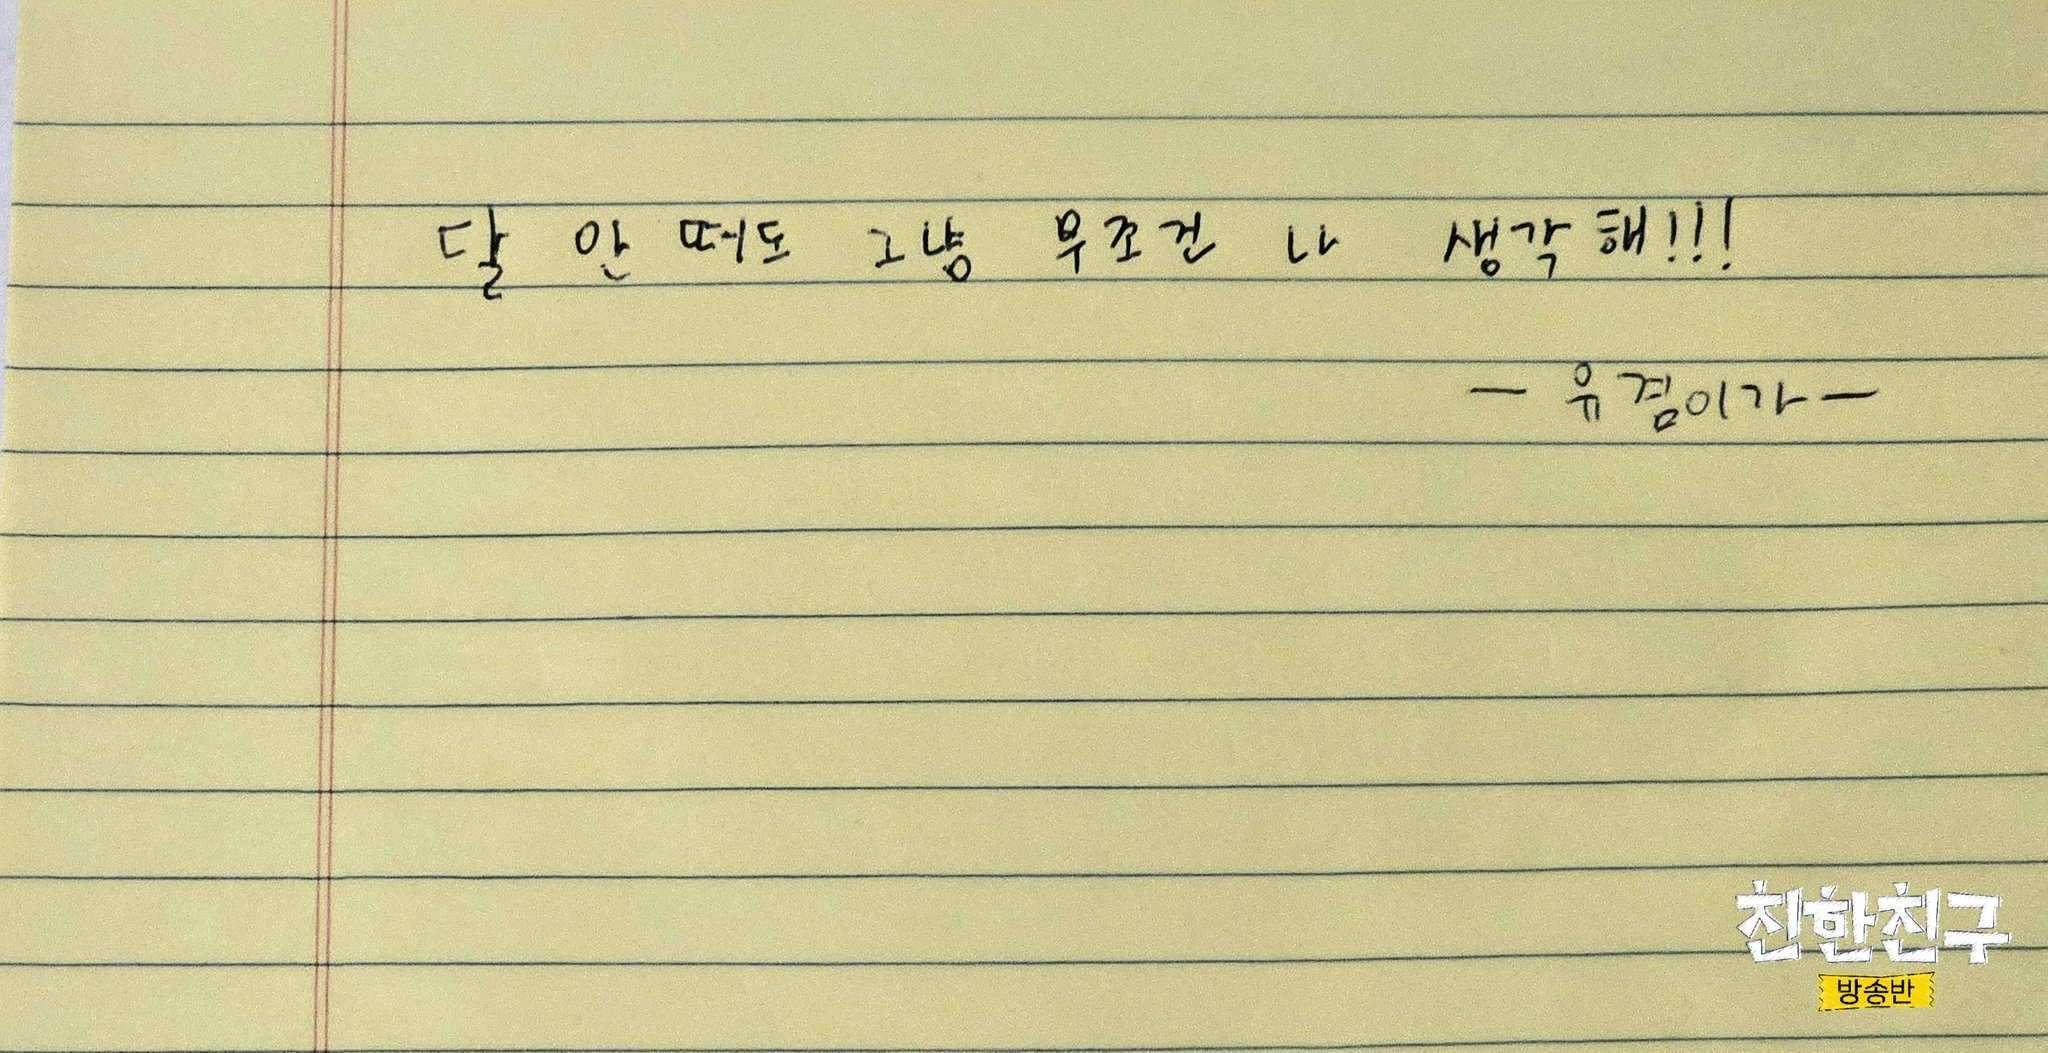 달 안떠도 그냥 무조건 나 생각해!!!
- 유겸이가 -
친한친구
방송반